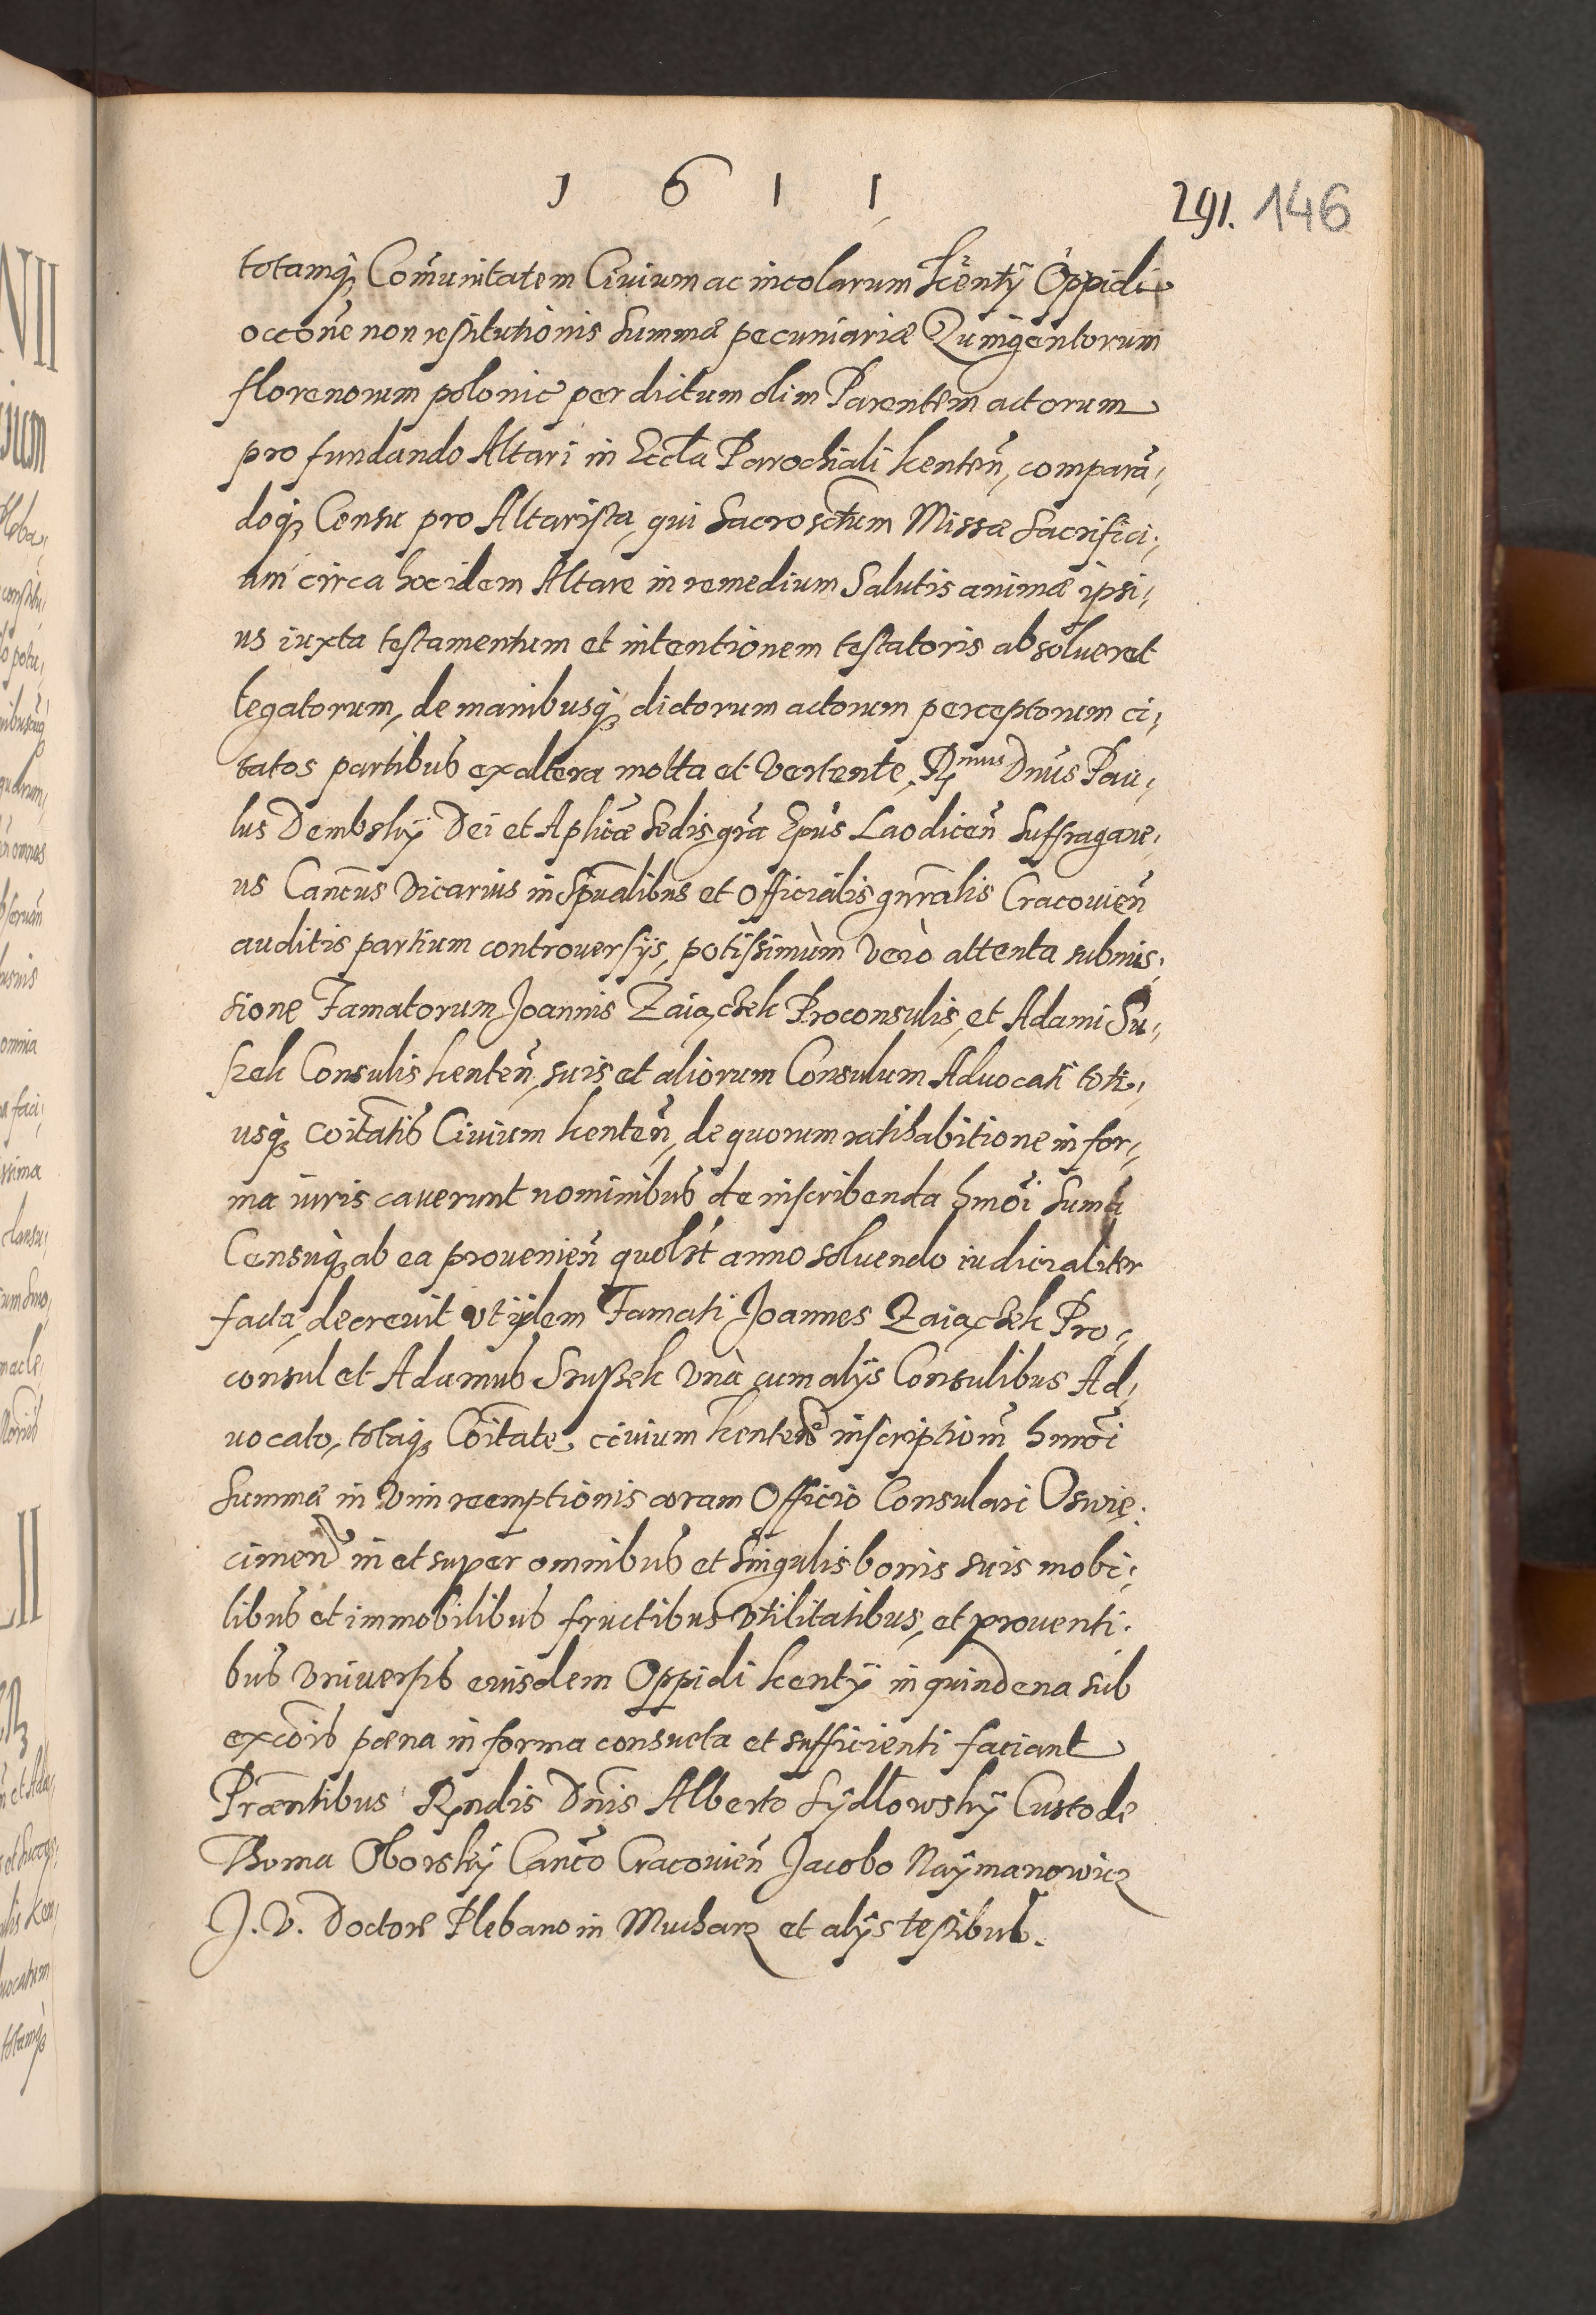 1 6 1 1
291. 146
totamq́ꝫ Com̃unitatem Ciuium ac incolarum Kenty Oppidi
occoñe non restitutionis Summæ pecuniariæ Quingentorum
florenorum polonic per dictum olim Parentem actorum
pro fundando Altari in Eccl̃a Parochiali Kenteñ, comparã,
doq́ꝫ Censu pro Altarista, qui Sacrosctum Missæ Sacrifici,
um circa hoc idem Altare in remedium Salutis animæ ipsi,
us iuxta testamentum et intentionem testatoris absolueret
legatorum, de manibusq́ꝫ dictorum actorum perceptorum ci,
tatos partibus ex altera mota et vertente, R̃mus Dñus Pau,
lus Dembsky Dei et Aplicæ Sedis gr̃a Ep̃us Laodiceñ Suffragane,
us Canc̃us Vicarius in Sp̃ualibus et Officialis gñralis Cracouieñ
auditis partium controuersijs, potissimùm verò attenta submis,
sione Famatorum Joannis Zaiączek Proconsulis, et Adami Sru,
szek Consulis Kenteñ, suis et aliorum Consulum Aduocati toti,
usq́ꝫ coĩtatis Ciuium Kenteñ, de quorum ratihabitione in for,
ma iuris cauerunt nominibus de inscribenda hmõi Sum̃a
Censuq́ꝫ ab ea prouenieñ quolt̃ anno soluendo iudicialiter
facta, decreuit vt ijdem Famati Joannes Zaiączek Pro,
consul et Adamus Sruszek vnà cum alijs Consulibus Ad,
uocato, totaq́ꝫ Coĩtate, ciuium Kenteñ inscriptiom̃ hmõi
Summæ in vim reemptionis coram Officio Consulari Oswię,
cimeñ in et super omnibus et Singulis bonis suis mobi,
libus et immobilibus fructibus vtilitatibus, et prouenti,
bus vniuersis eiusdem Oppidi Kenty in quindena sub
excõis pœna in forma consueta et sufficienti faciant
Præñtibus Rñdis Dñis Alberto Sydłowsky Custode
Thoma Oborsky Canc̃o Cracouieñ Jacobo Naymanowicz
J. V. Doctore Plebano in Mucharz et alijs testibus.